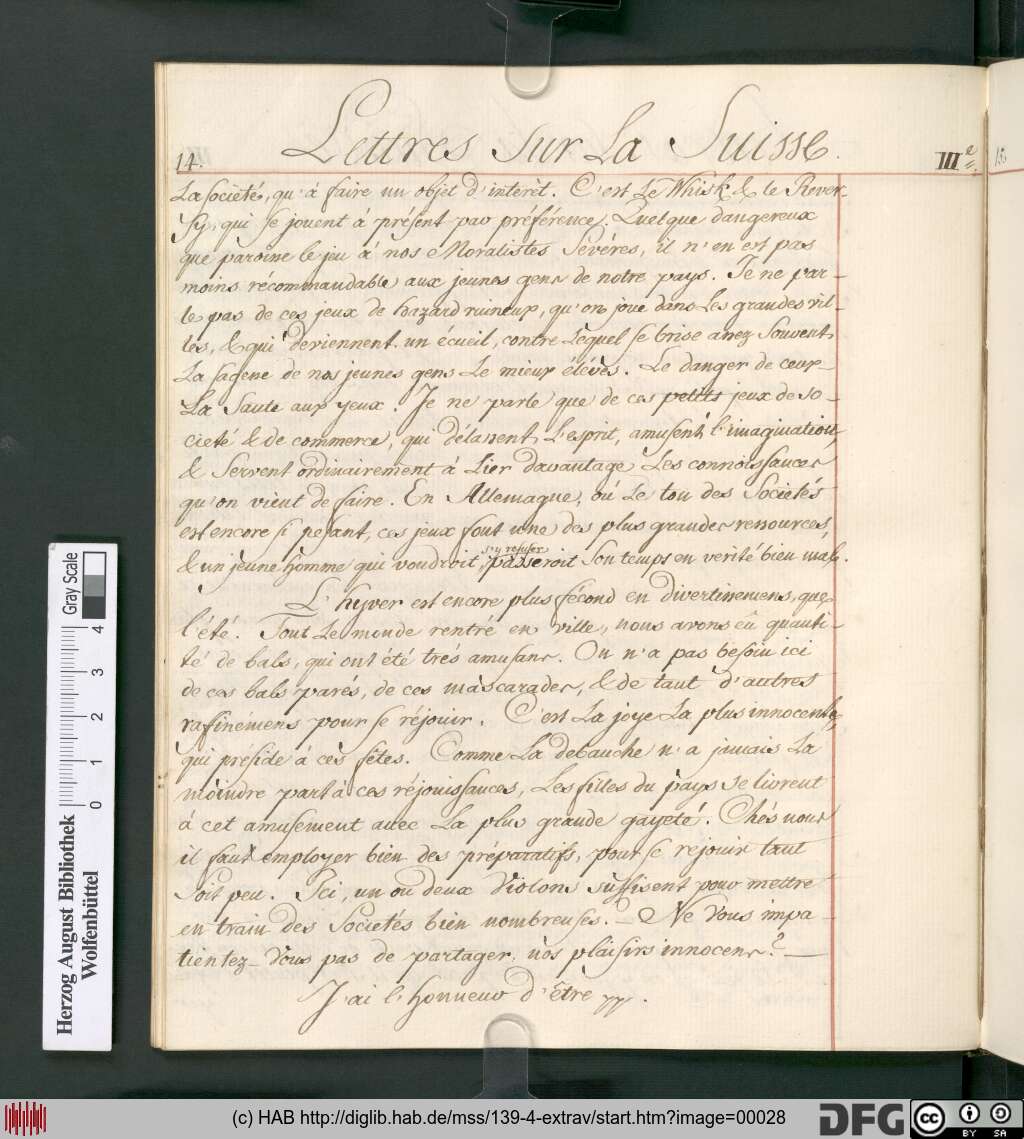 Lettres Sur La Suisse.
14.
III.e
15
La societé, qu'à faire un objet d'intérèt. C'est Le Whisk & le Rever-
sy, qui se jouent à présent par préférence. Quelque dangereux
que paroine le jeu à nos Moralistes Sévéres, il n'en est pas
moins récommandable aux jeunes gens de notre pays. Je ne par-
le pas de ces jeux de hazard ruineux, qu'on joue dans Les grandes vil-
les, & qui deviennent un écueil, contre Lequel se brise anez Souvent
La sagene de nos jeunes gens Le mieux élevés. Le danger de ceux-
La Saute aux yeux. Je ne parle que de ces petits jeux de so-
cieté & de commerce, qui délassent L'esprit, amusent l'imagination,
& Servent ordinairement à Lier davantage Les connoissances
qu'on vient de faire. En Allemagne, où Le ton des Societés
est encore si pesant, ces jeux font une des plus grandes ressources,
s'y refuser
& un jeune homme qui voudroit, passeroit Son temps en verité bien mal.
L'hyver est encore plus fécond en divertinemens, que
l'été. Tout Le monde rentré en ville, nous avons eû quanti-
té de bals, qui ont été trés amusans. On n'a pas besoin ici
de ces bals parés, de ces mascarades, & de tant d'autres
rafinémens pour se réjouir. C'est La joye La plus innocente,
qui préside à ces fêtes. Comme La debauche n'a jamais La
moindre part à ces réjouissances, Les filles du pays se livrent
à cet amusement avec La plus grande gayeté. Chés nous
il faut employer bien des préparatifs, pour se rejouir tant
Soit peu. Ici, un ou deux Violons suffisent pour mettre
en train des Societés bien nombreuses. — Ne Vous impa-
tientez-Vous pas de partager nos plaisirs innocens? —
J'ai l'honneur d'être
Herzog August Bibliothek
Wolfenbüttel
0 1 2 3 4
Gray Scale
(c) HAB http://diglib.hab.de/mss/139-4-extrav/start.htm?image=00028
DFG
cc
BY SA